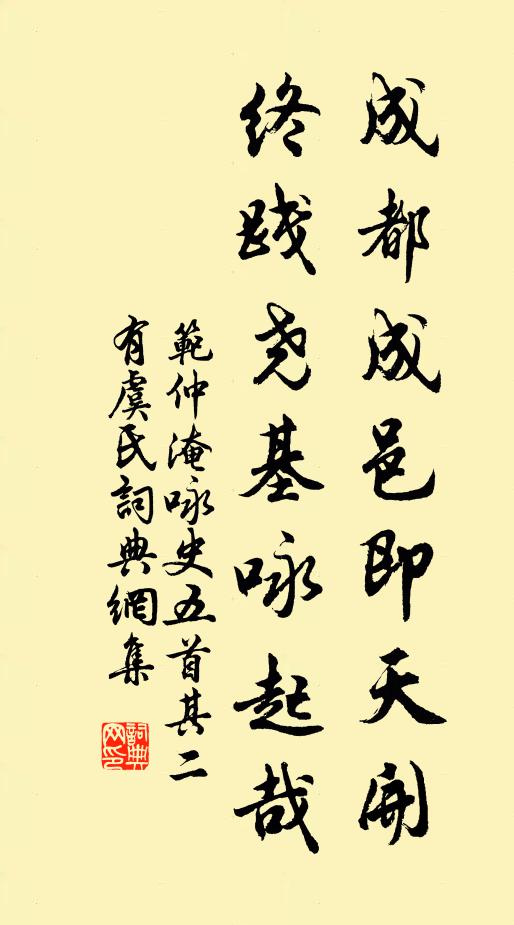 成都成邑即天開
終踐尧基咏起哉
範仲淹咏史五首其二
有虞氏詞典網集
詞典網印